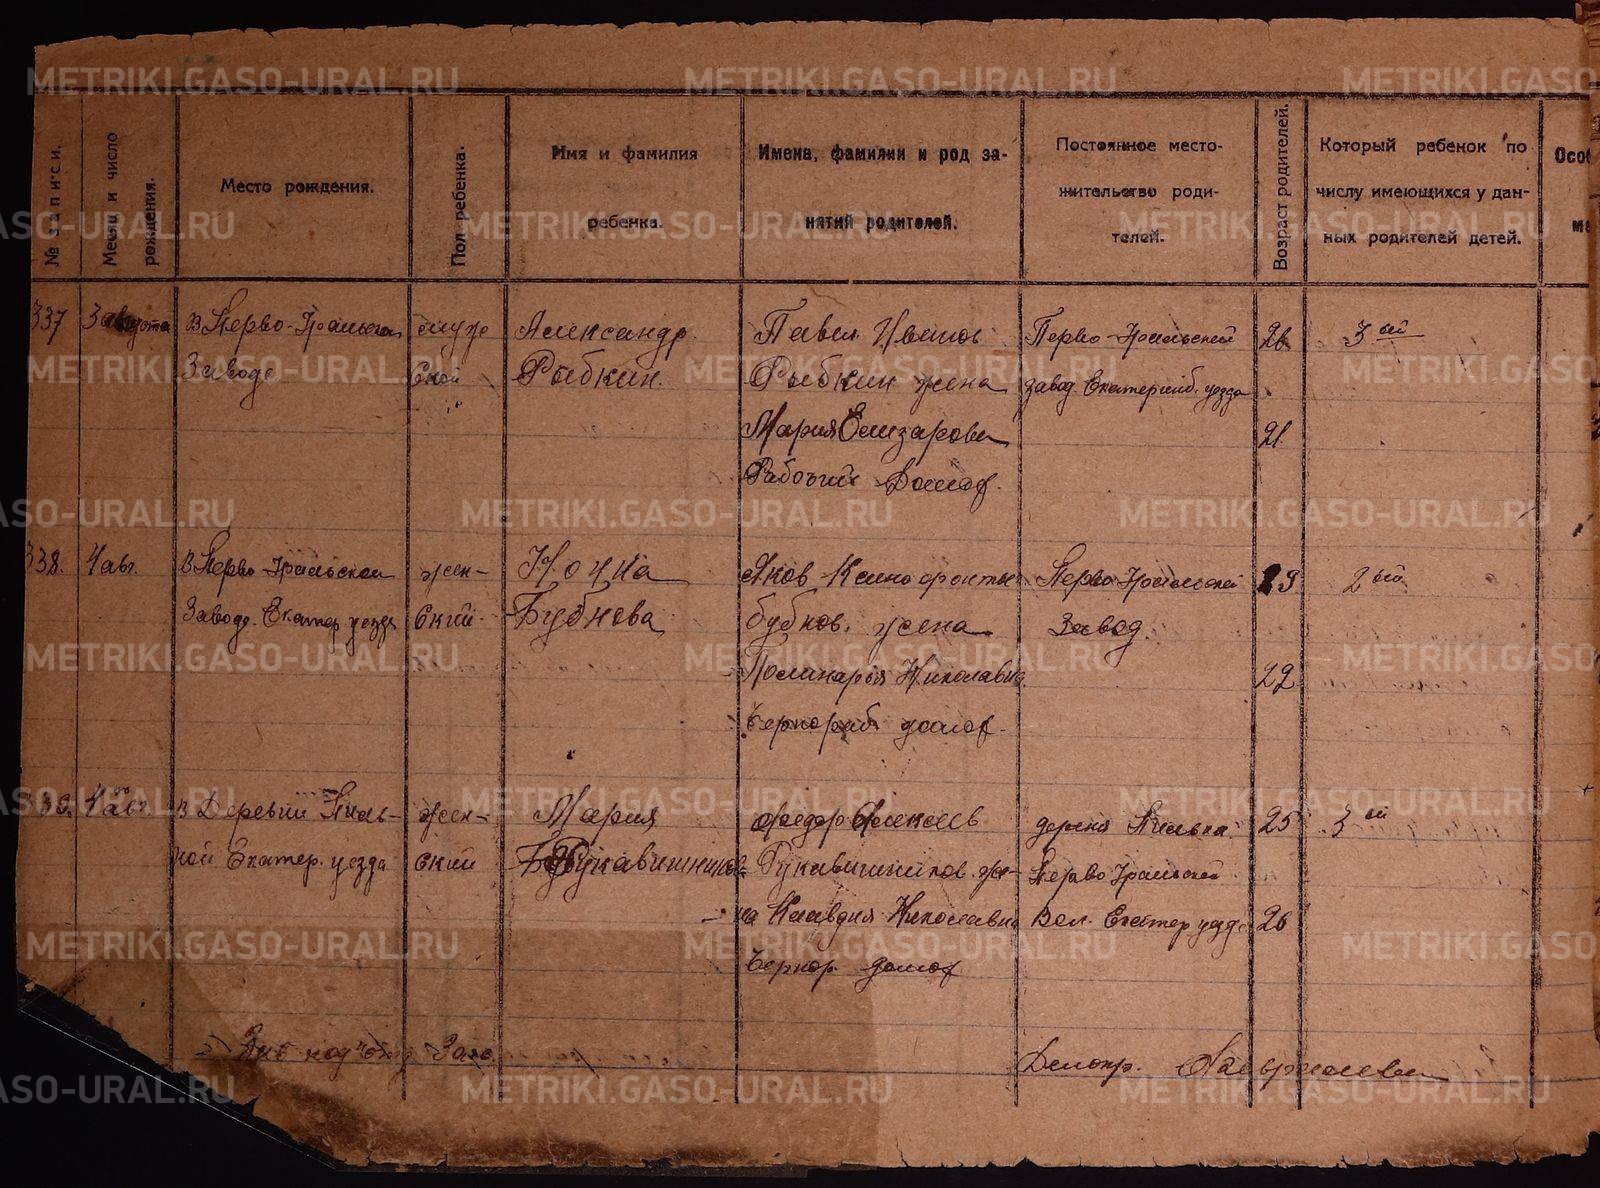 METRIKI.GASO-URAL.RU
№ записи.
Месяц и число рождения.
Место рождения.
Пол ребенка.
Имя и фамилия
ребенка.
Имена, фамилии и род за-
нятий родителей.
Постоянное место-
жительство роди-
телей.
Возраст родителей.
Который ребенок по
числу имеющихся у дан-
ных родителей детей.
337
3 августа
В Перво-Уральском
Заводе
муж
ской
Александр
Рыбкин.
Павел Иванов
Рыбкин жена
Мария Елизарова
Рабочий домох.
Перво-Уральский
завод Екатеринб. уезда
26
21
3 ий
338.
4 авг.
В Перво-Уральском
Заводе Екатер уезда
жен-
ский
Бубнова
Яков
Бубнов, жена
Николаевна
Чернораб. домох.
Перво-Уральский
Завод.
29
22
2 ой
4 авг.
В Деревни Пиль-
ной Екатер. уезда
жен-
ский
Мария
Рукавишникова
Федор Алексеев
Рукавишников же-
на Клавдия Николаевна
Чернор. домох
дерня Пильна
Перво Уральской
Вол. Екатер уезд
25
26
3 ий
Делопр.